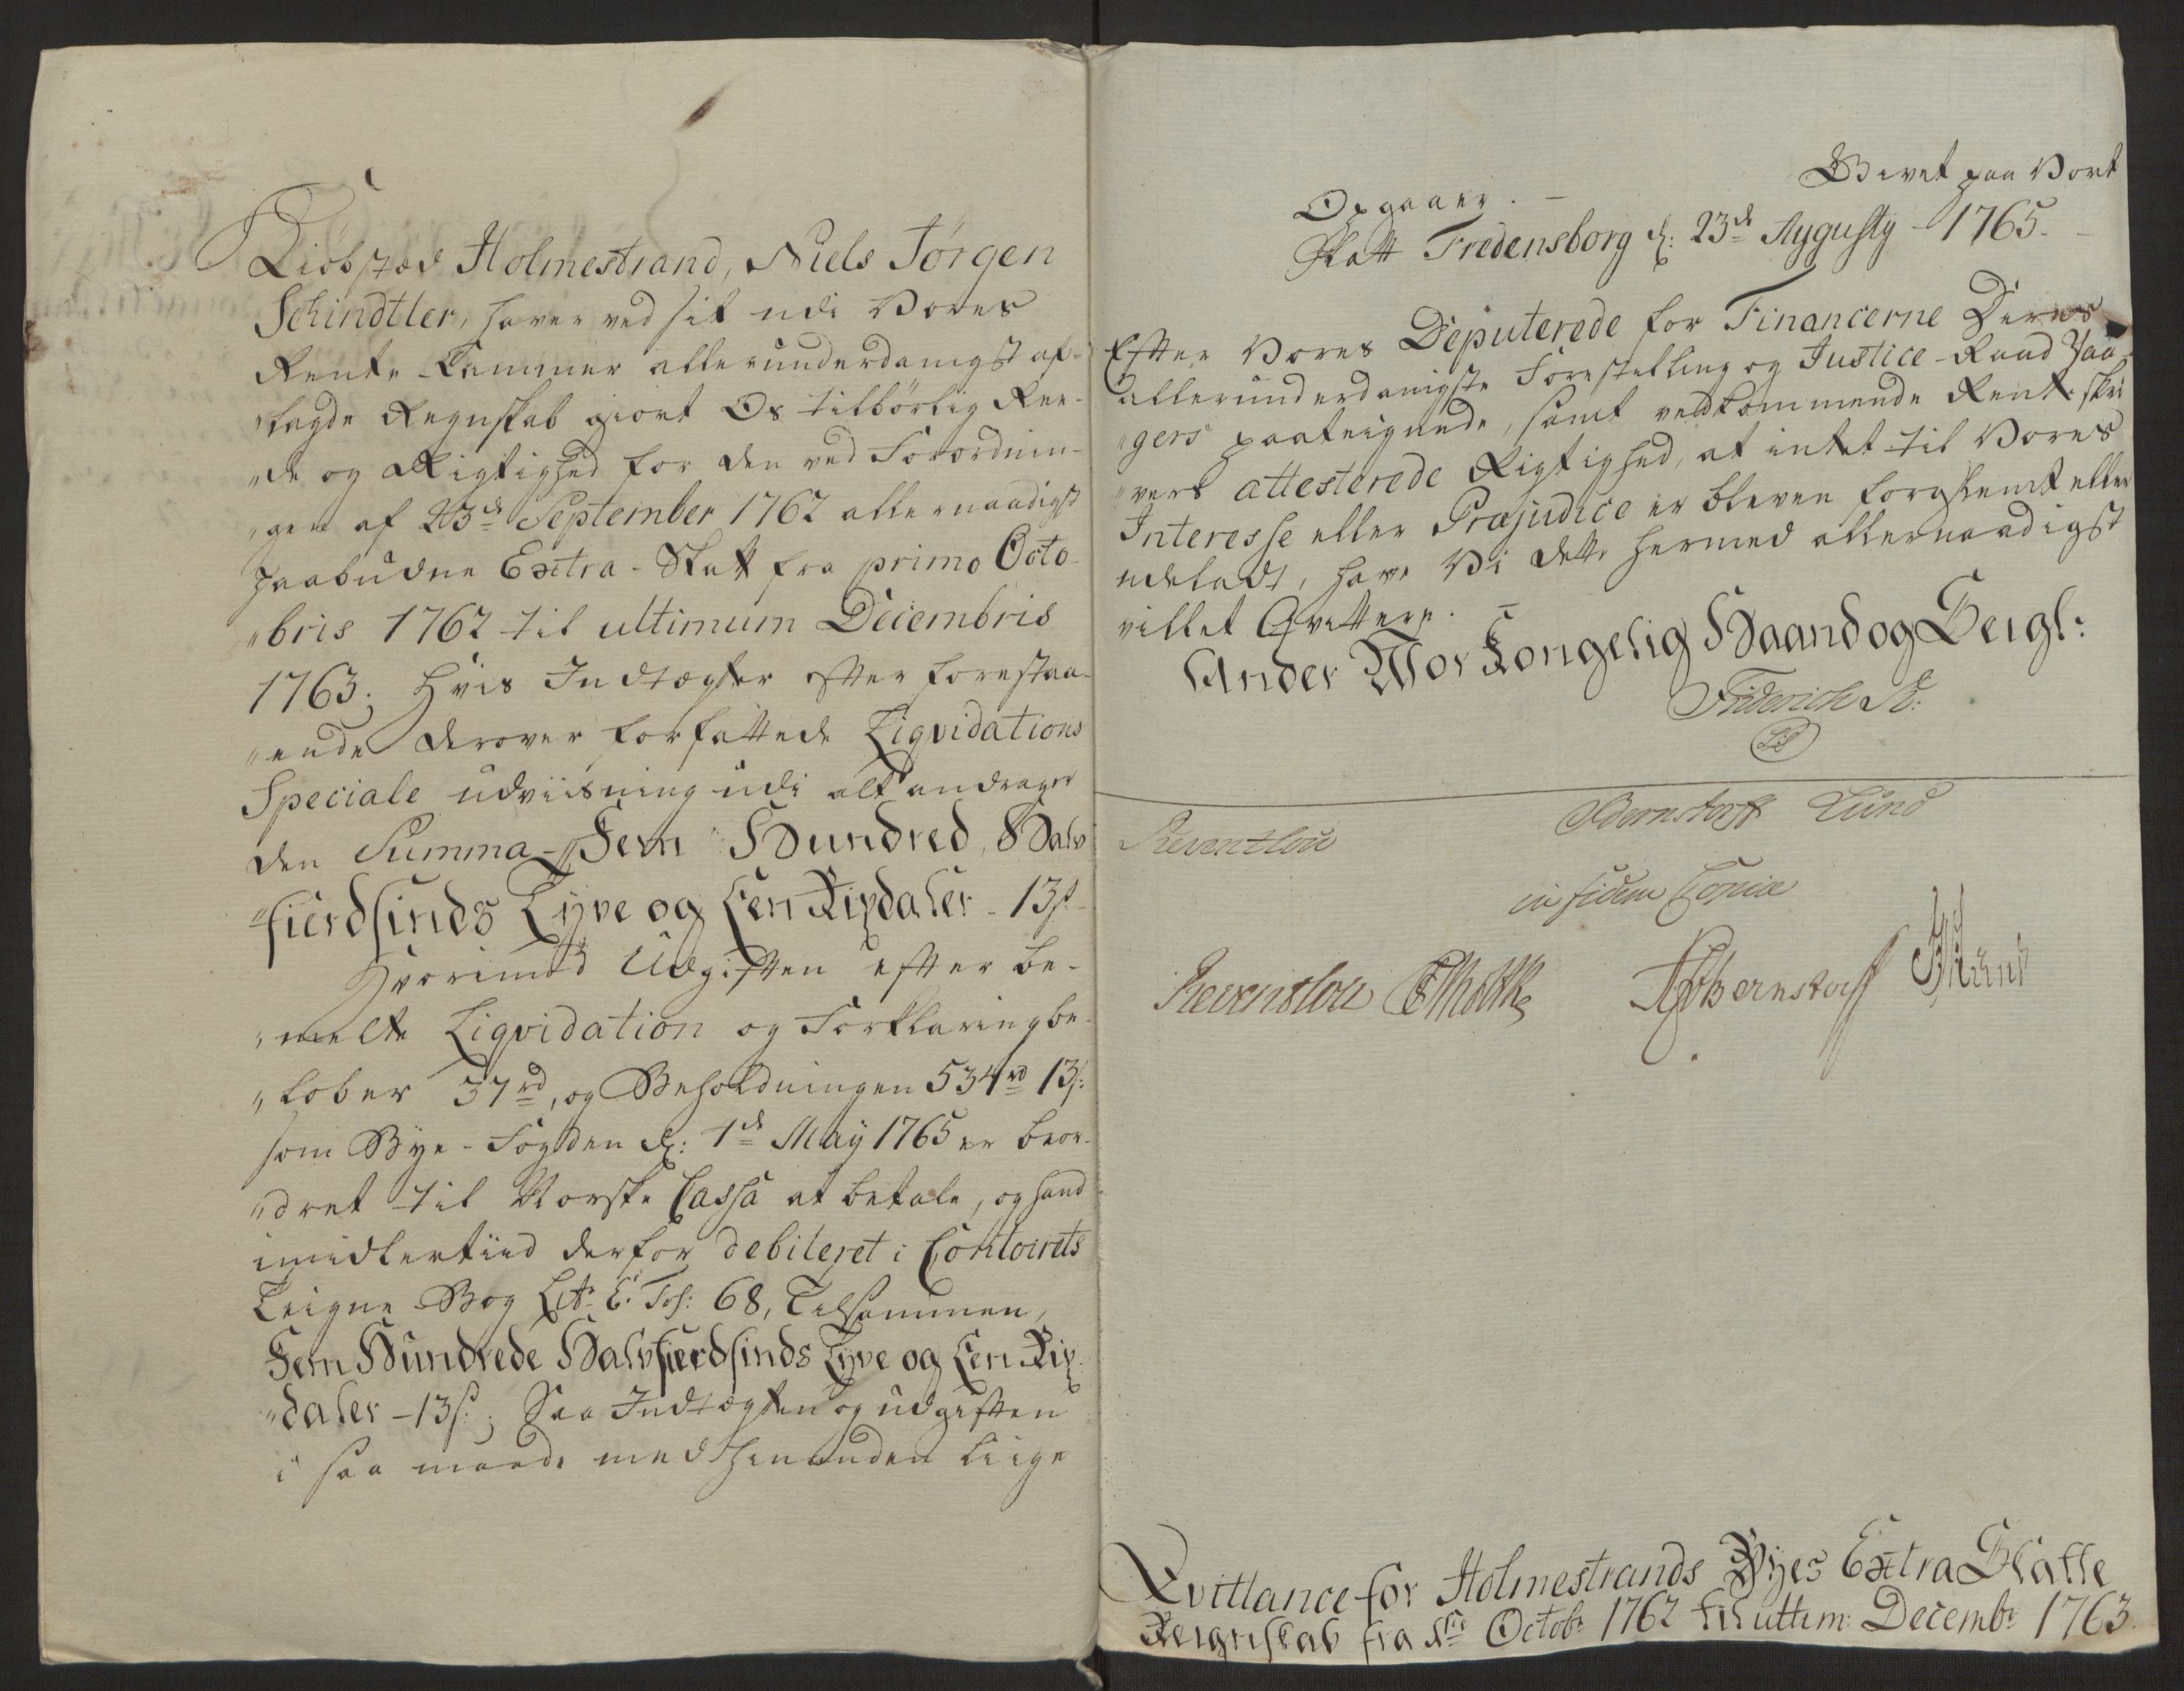 Kiöbstæd Holmestrand, Niels Jörgen
Schindtler, haver ved sit udi Vores
Rente-Kammer allerunderdanigst af-
„lagde Regnskab giort Os tilbörlig Ree-
„de og Rigtighed for den ved Forordnin-
„gen af 23de September 1762 allernaadigst
paabudne Extra-Skatt fra primo Octo-
„bris 1762 til ultimum Decembris
1763; Hvis Indtægter efter forestaa-
„ende derover forfattede Liqvidations
Speciale udviisning udi alt andrager
den Summa Fem Hundred, Halv
„fierdsinds Tyve og Een Rixdaler - 13s.
Hvorimod Udgiften efter be-
„melte Liqvidation og Forklaring be-
„lober 37rd, og Beholdningen 534rd 13s:
som Bye-Fogden d: 1de Maÿ 1765 er beor-
„dret til Norske Cassa at betale, og hand
imidlertiid derfor debiteret i Contoirets
Teigne Bog Litr E. Fol: 68, Tilsammen,
Fem Hundrede Halvfierdsinds Tyve og Een Rix-
„daler - 13s.; Saa Indtægten og udgiften
i saa maade med hinanden liige
Opgaaer. - Givet paa Vort
Slatt Fredensborg d: 23de Augusty 1765.
Efter Vores Deputerede for Financerne Deres
allerunderdanigste Forestelling og Justice-Raad Jæ-
„gers paateignede, samt vedkommende Rentskri-
„vers attesterede Rigtighed, at intet til Vores
Interesse eller Præjudice er bleven forglemt eller
udeladt, have Vi dette hermed allernaadigst
villet Qvittere. -
Under Vor Kongelig Haand og Seigl:
Friderich R:
LS
Reventlou Bernstorff Lund
in fidem Copiæ
Reventlou Bernstorff
Qvittance for Holmestrands Byes Extra Skatte
Reignskab fra 1ste Octobr 1762 til ultim: Decembr 1763.